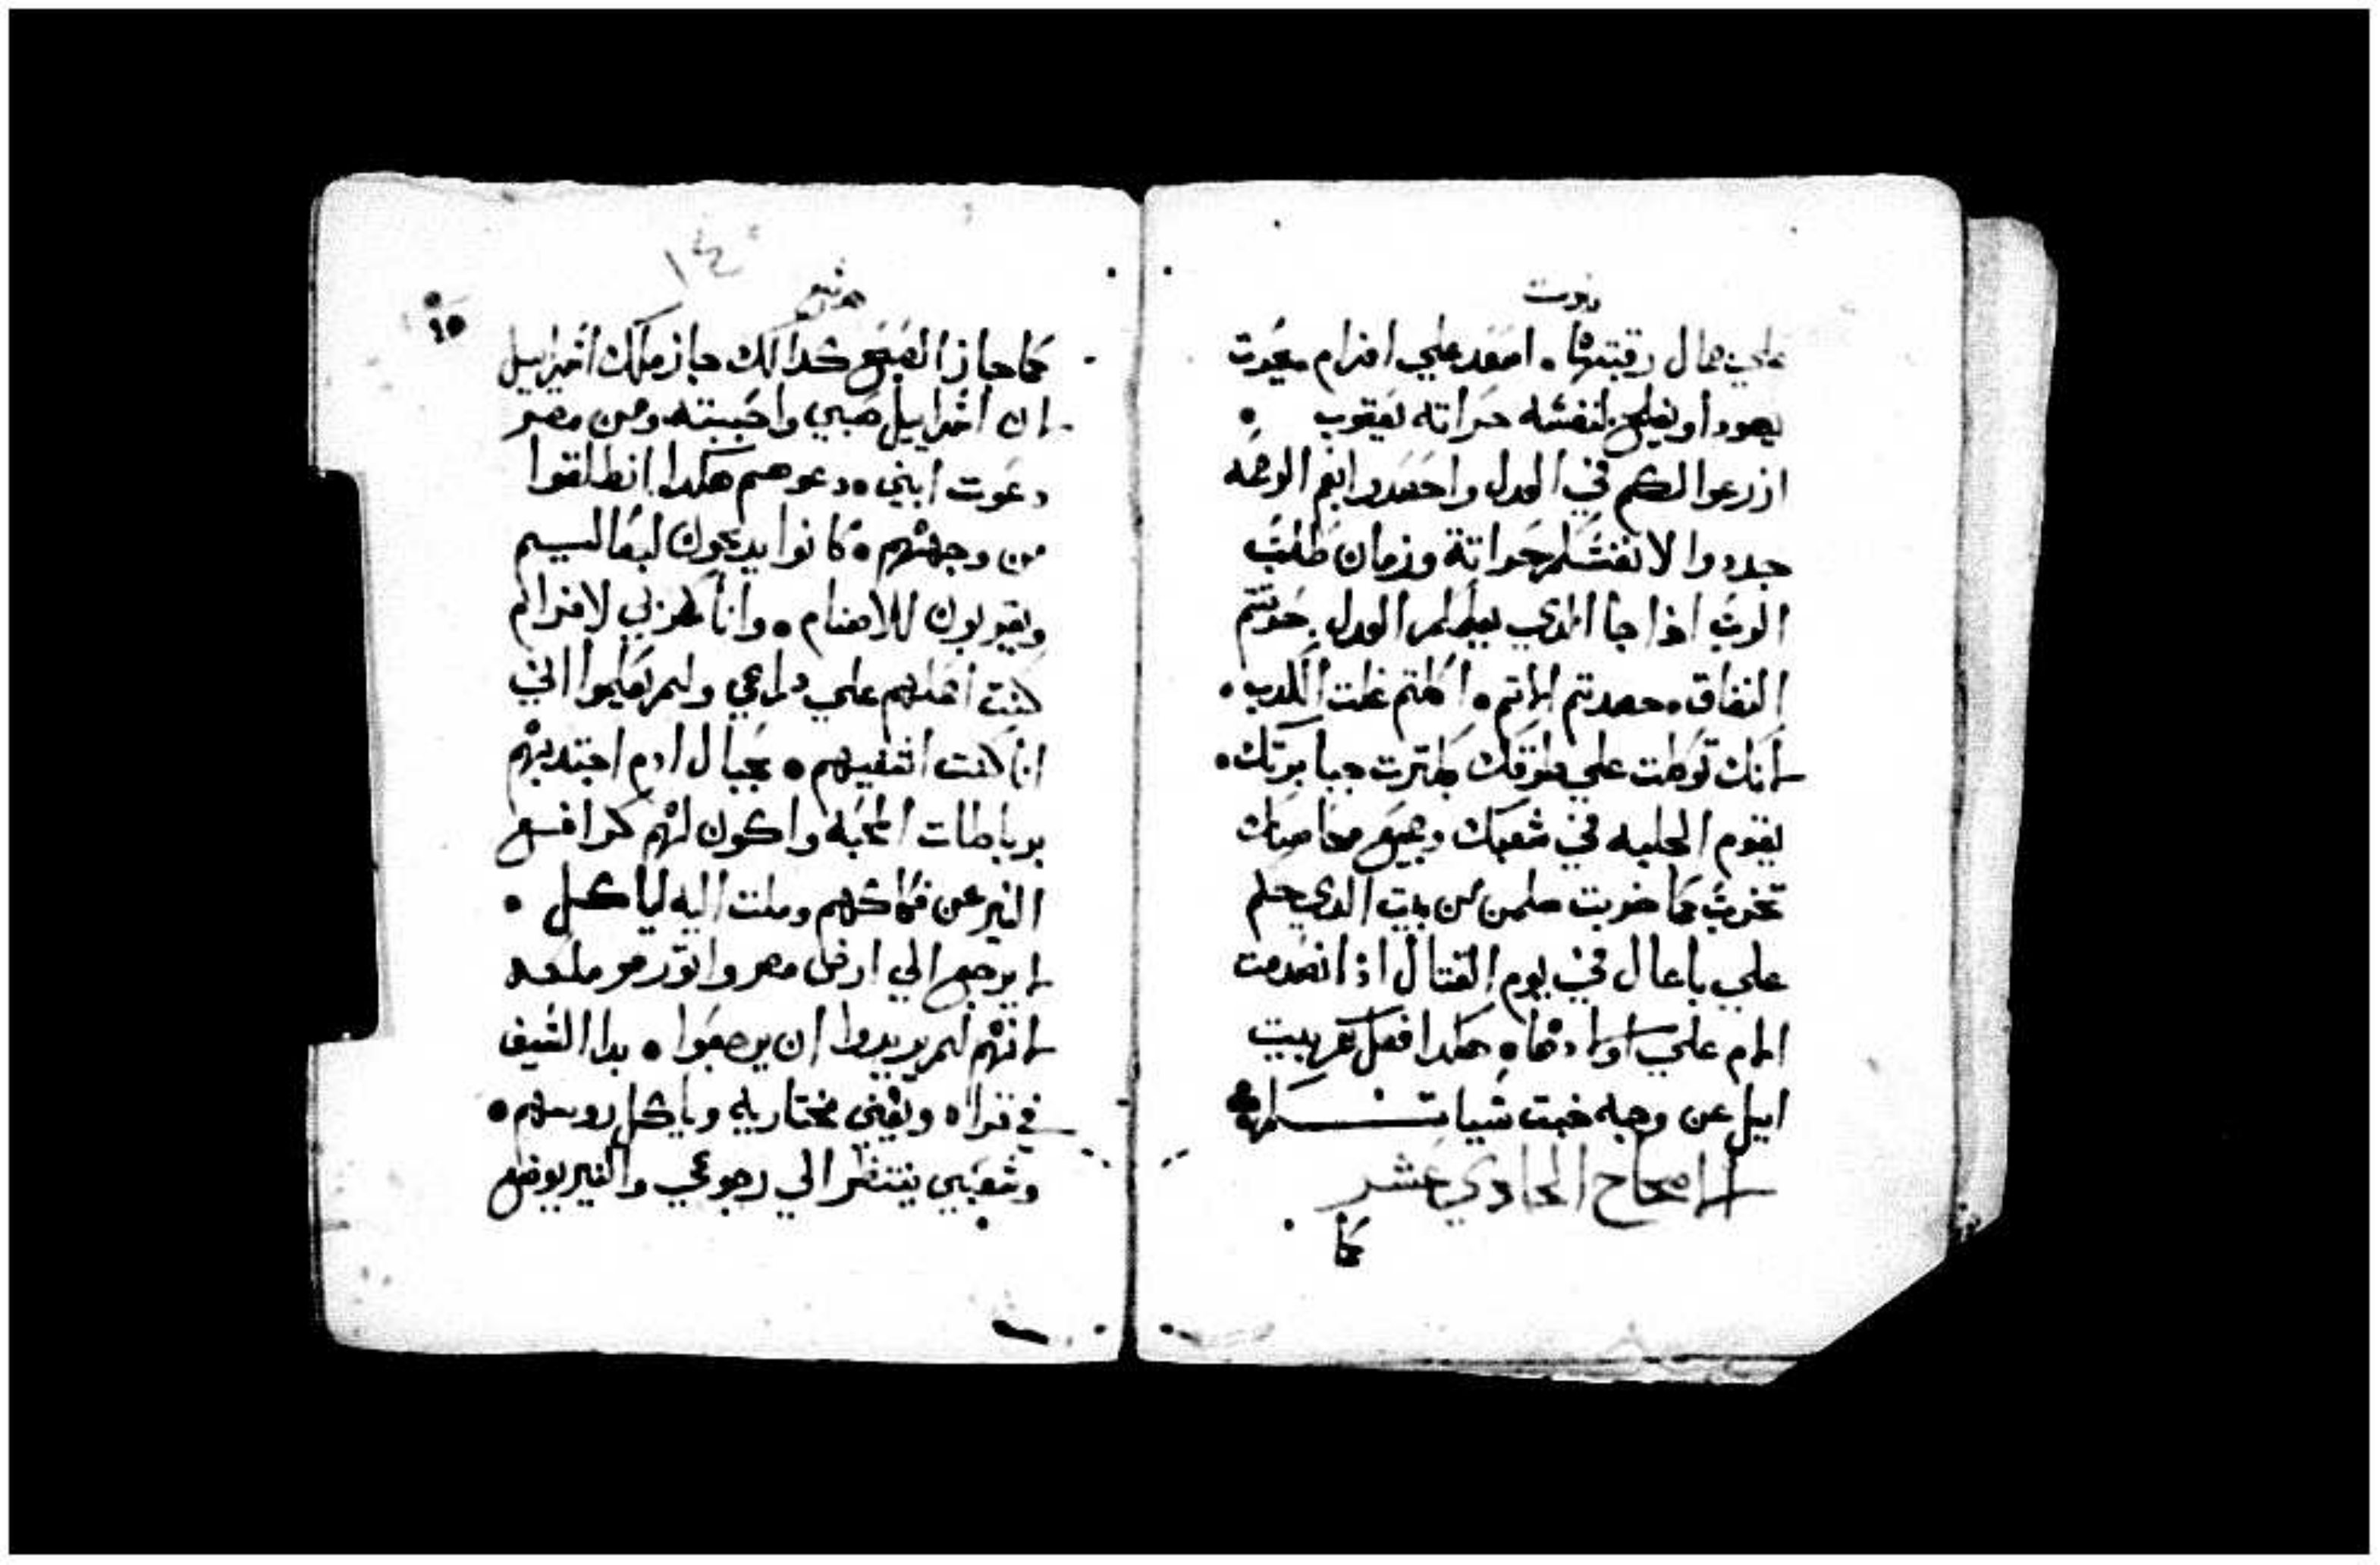 علي جمال رقبتها. اصعد علي افرام يحرت
يهودا ويفلح لنفسه حراته يعقوب
ازرعوا لكم في العدل واحصدوا بفم الرحمه
جددوا لانفسكم حراتة وزمان طلب
الرب اذا جا الدي يعلمكم العدل حرتتم
النفاق. حصدتم الاتم. اكلتم غلت الكدب.
انك توكلت علي طرقك بكترت جبابرتك.
يقوم الجلبه في شعبك وجميع محاصنك
تخرب كما خربت صلمن من بيت الدي حكم
علي باعال في يوم القتال اذا انصدمت
الام علي اولادها. هكدا افعل بكم بيت
ايل عن وجه خبت شياتكم
الاصحاح الحادي عشر
كما
١٤
هوشع
كما جاز الصبح كدالك جاز ملك اسراييل
ان اسراييل صبي واحببته ومن مصر
دعوت ابني. دعوهم هكدا انطلقوا
من وجههم. كانوا يدبحون لبعاليم
ويقربون للاصنام. وانا كمربي لافرام
كنت احملهم علي دراعي ولم يعلموا اني
انا كنت اشفيهم. بحبال ادم اجتدبهم
برباطات المحبه واكون لهم كرافع
النير عن فكاكهم وملت اليه لياكل.
لا يرجع الي ارض مصر واتور هو ملكه
لانهم لم يريدوا ان يرجعوا. بدا السيف
في قراه ويفني مختاريه وياكل روسهم.
وشعبي ينتظر الي رجوعي والنير يوضع